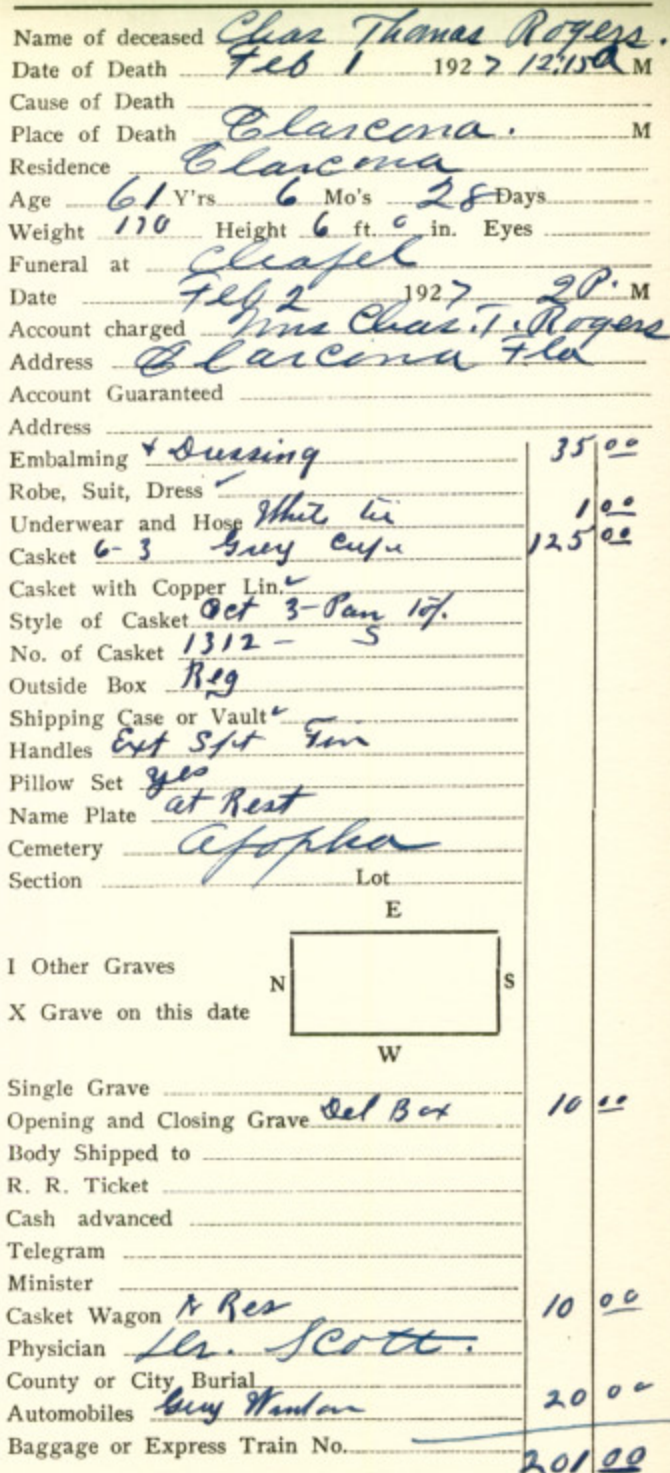 Name of deceased Chas Thomas Rogers.
Date of Death Feb 1 1927 12:15 a M
Cause of Death
Place of Death Clarcona. M
Residence Clarcona
Age 61 Y'rs 6 Mo's 28 Days
Weight 170 Height 6 ft. 0 in. Eyes
Funeral at Chapel
Date Feb 2 1927 2 P. M
Account charged Mrs Chas. T. Rogers
Address Clarcona Fla
Account Guaranteed
Address
Embalming + Dressing 35 00
Robe, Suit, Dress ✓
Underwear and Hose White tie 1 00
Casket 6-3 Grey 125 00
Casket with Copper Lin. ✓
Style of Casket Oct 3-Pan
No. of Casket 1312 - S
Outside Box Reg
Shipping Case or Vault ✓
Handles Ext
Pillow Set yes
Name Plate at Rest
Cemetery Apopka
Section Lot
E
I Other Graves
N S
X Grave on this date
W
Single Grave
Opening and Closing Grave Del Box 10 00
Body Shipped to
R. R. Ticket
Cash advanced
Telegram
Minister
Casket Wagon Res 10 00
Physician Dr. Scott.
County or City Burial
Automobiles Guy 20 00
Baggage or Express Train No.
201 00